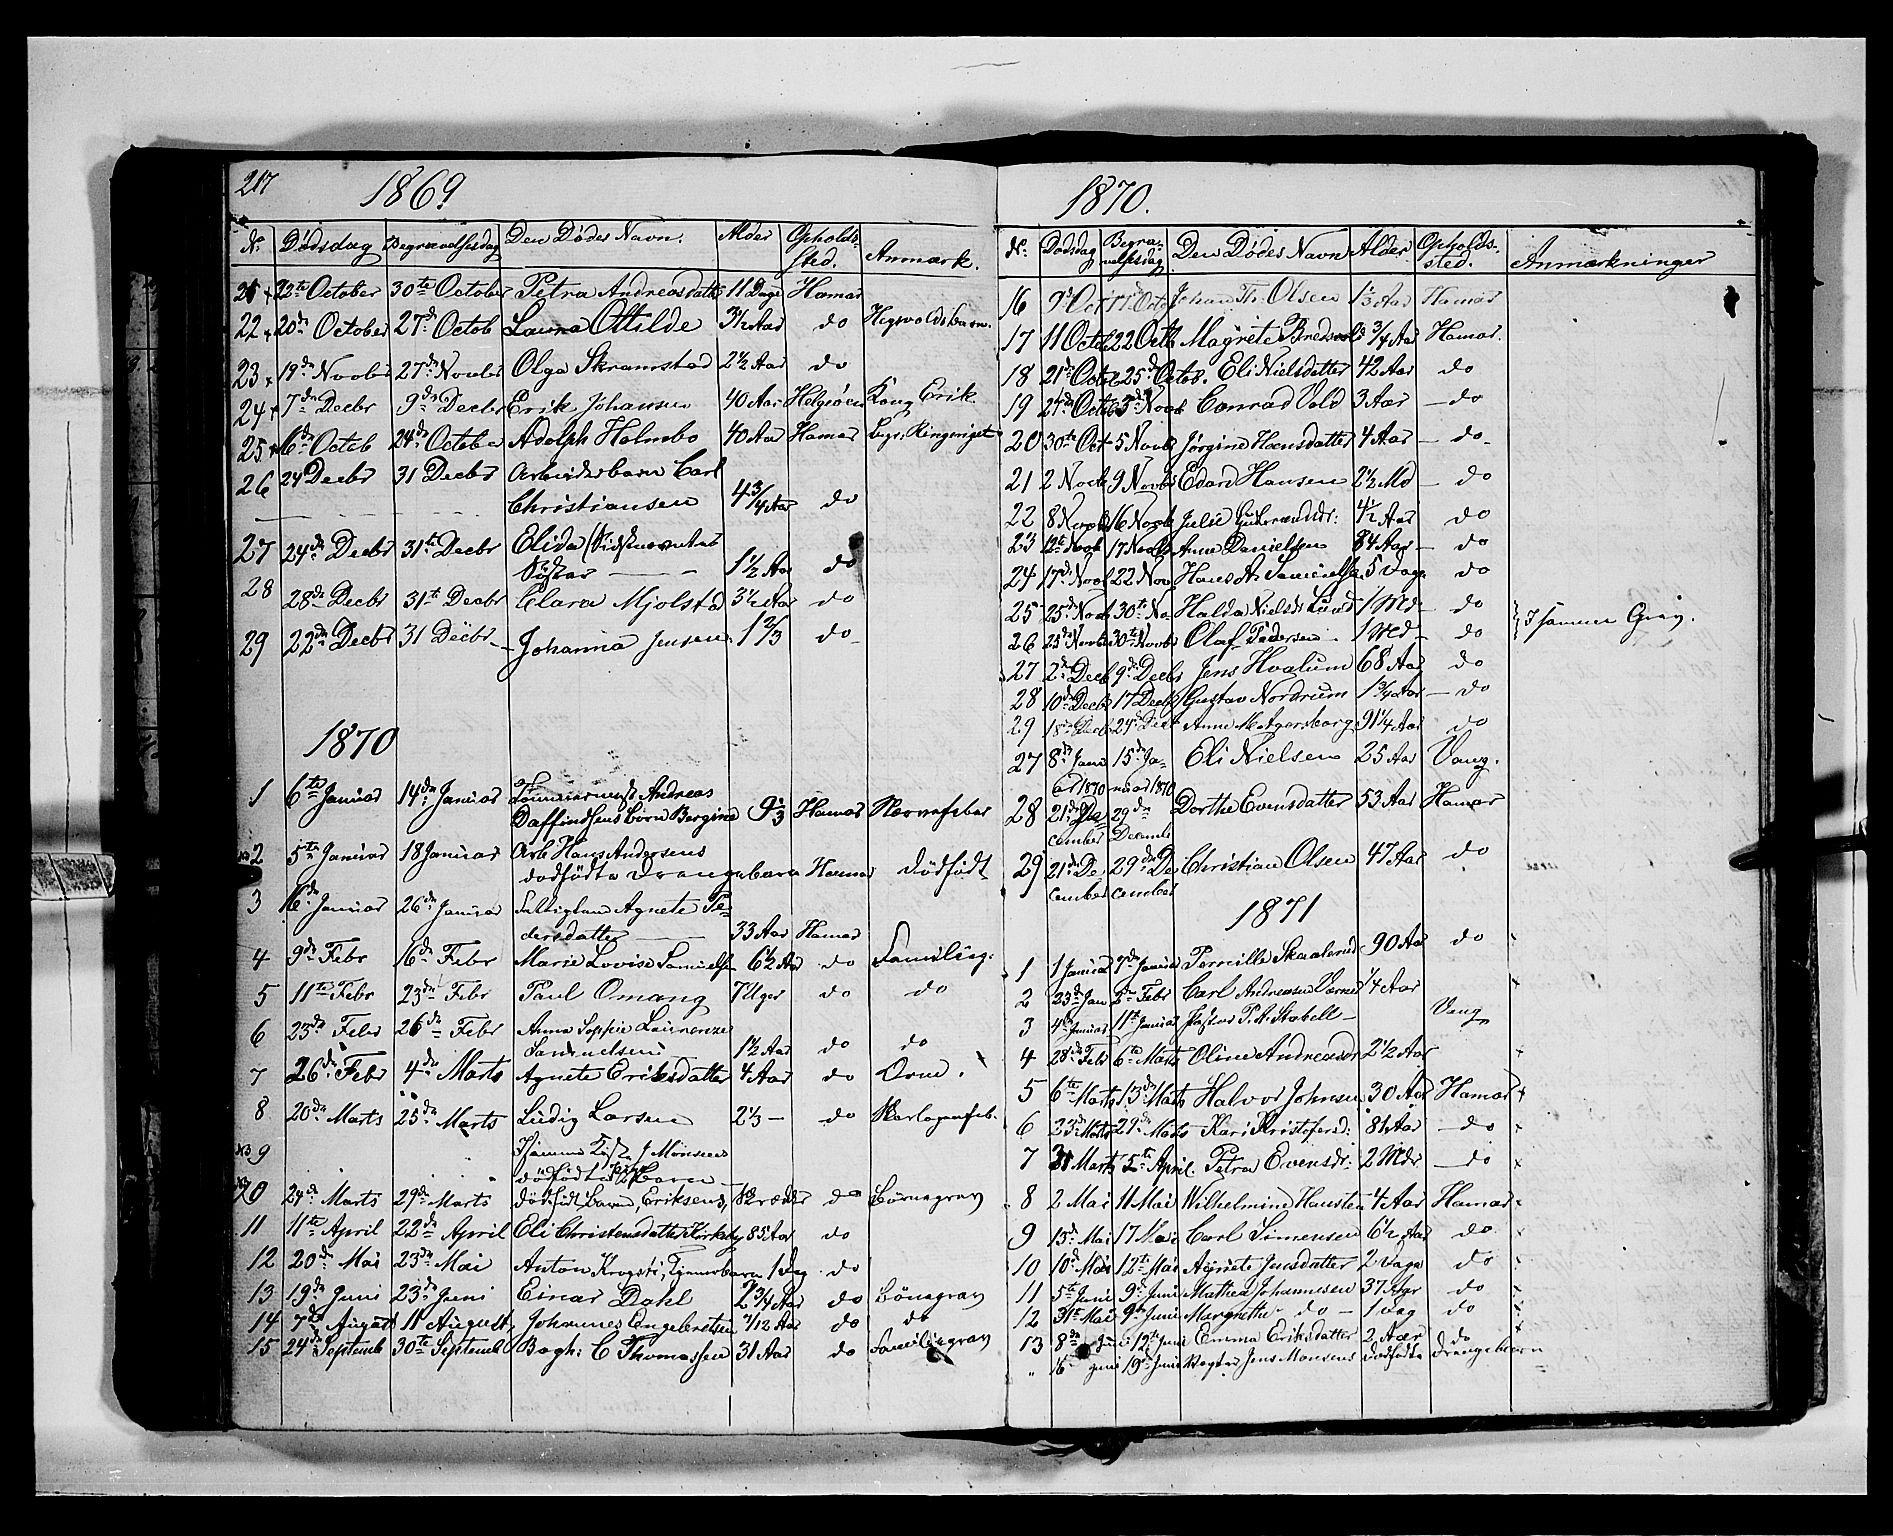 217
1869
No. Dödsdag Begravelsesdag Den Dödes Navn. Alder Opholds-
sted. Anmærk.
21 22te October 30te October Petra Andreasdatte 11 Dage Hamar
22 20de October 27de Octob Laura Ottilde 3½ Aar do
23 19de Novbr 27de Novbr Olga Skramstad 2½ Aar do
24 7de Decbr 9de Decbr Erik Johansen 40 Aar Helgöen Kong Erik
25 16de Octob 24de Octobe Adolph Holmbo 40 Aar Hamar Begr. Ringeriget
26 24 Decbr 31 Decbr Arbeidsbarn Carl
Christiansen 4¾ Aar do
27 24de Decbr 31te Decbr Elida (Sidstnævntes
Söster 1½ Aar do
28 28de Decbr 31te Decbr Clara Mjolstad 3½ Aar do
29 22de Decbr 31 Decbr Johanna Jensen 1⅔ do
1870
1 6te Januar 14de Januar Tömmermand Andreas
Daffindsens barn Bergine 9⅓ Hamar Nervefeber
2 5te Januar 18 Januar Arb. Hans Andersens
dödfödte Drengebarn Hamar Dödfödt
3 16de Januar 26de Januar Fattiglem Agnete Pe-
dersdatter 33 Aar Hamar
4 9de Febr 16de Febr Marie Lovise Samuels 6½ Aar do Familieg.
5 11te Febr 23de Febr Paul Omang 7 Uger do do
6 23de Febr 26de Febr Anna Sophie Laurenze
Samuelsen 1½ Aar do do
7 26de Febr 4de Marts Agnete Eriksdatter 4 Aar do Orm.
8 20de Marts 25de Marts Ludvig Larsen 2⅓ do Skarlagenfeb.
9 Monsens
dödfödte Barn
10 24de Marts 29de Marts dödfödt Barn, Eriksens, do Börnegrav
11 11te April 22de April Eli Christensdatter Kirkeby 85 Aar do
12 20de Mai 23de Mai Anton Krogstì, 1 dag do
13 19de Juni 23de Juni Einar Dahl 2¾ Aar do Börnegrav
14 7de August 11 August Johannes Engebretsen 7/12 Aar do do
15 24de Septemb 30te Septemb Bogh: C Thomassen 31 Aar do Familiegrav
1870.
No. Dödsdag Begra-
velsesdag Den Dödes Navn Alder Opholds-
sted. Anmærkninger
16 9de Oct Octo Johan Th. Olsen 1⅓ Aar Hamar
17 11 Octob 22 Octb Magrete Bredvold ¾ Aar Hamar.
18 21de Octob 25de Octob. Eli Nielsdatter 42 Aar do
19 27de Octob 3de Novb Conrad Vold 3 Aar do
20 30te Oct 5 Novb Jörgine Hansdatter 4 Aar do
21 2 Novb 9 Novb Edard Hansen 2½ Md do
22 8 Novb 16 Novb Julie Gudmundsdr: 4½ Aar do
23 12te Novb 17 Novb Anne Danielsen 84 Aar do
24 17de Novb 22 Nov Hans A. Samuelsen 5 Dage do
25 25de Novb 30te No Halda Nielsdr Lund 1 Md do
26 25de Novb 30te Novb Olaf Pedersen 1 Md do } I sammen Grav.
27 2de Decb 9de Decbr Jens Hvalum 68 Aar do
28 10de Decb 17 Decb Gustav Nordrum 1¾ Aar do
29 18de Decb 24de Decb Anne M. Agersborg 91¼ Aar do
27 8de Janu 15de Ja- Eli Nielsen 25 Aar Vang.
ar 1870 nuar 1870
28 21de De- 29de Dorthe Evensdatter 53 Aar Hamar
cember Decemb
29 21de De 29de De Christian Olsen 47 Aar do
cember cember
1871
1 1 Januar 7de Januar Pernille Skaalerud 90 Aar do
2 23de Jan 5te Febr Carl Andreasen Værnes ¼ Aar
3 4de Januar 11te Januar Pastor P. A. Stabell Vang
4 28de Febr 6te Marts Oline Andreasdr 2½ Aar
5 6te Marts 13de Marts Halvor Johnsen 30 Aar Hamar
6 23de Marts 29de Marts Kari Kristofersd: 81 Aar do
7 31 Marts 5te April. Petra Evensdr: 2 Mdr do
8 2 Mai 11 Mai Wilhelmine Hansten 4 Aar Hamar
9 13de Mai 17 Mai Carl Simensen 6½ Aar do
10 10de Mai 12te Mai Agnete Jensdatter 2 Dage do
11 5te Juni 9de Juni Mathea Johannesen 37 Aar do
12 31te Mai 9de Juni Margrethe do 1 Dag do
13 8de Juni 12te Juni Emma Eriksdatter 2 Aar do
" 16 Juni 19de Juni Jens Monsens dödfödte Drengebarn